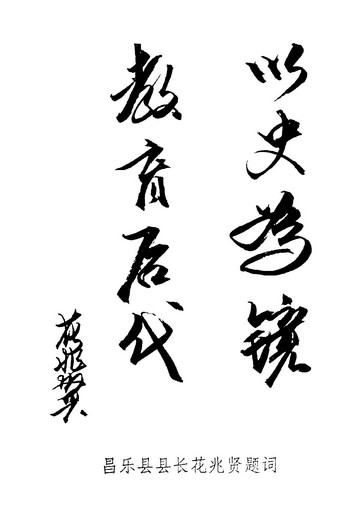 以史为镜
教育后代
花兆贤
昌乐县县长花兆贤题词